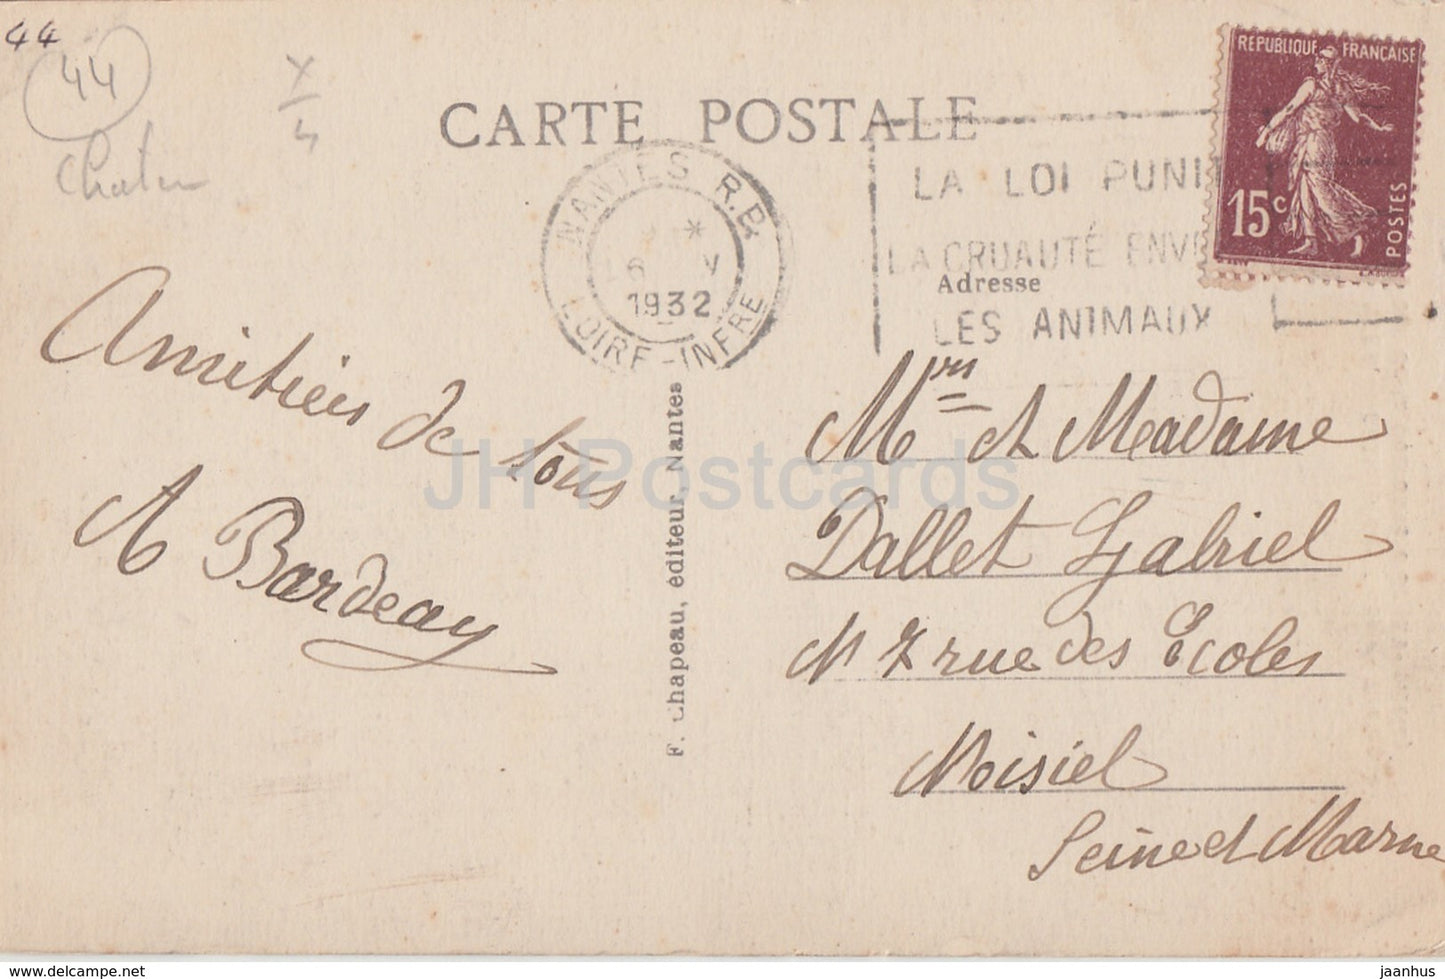 44
44
CARTE POSTALE
REPUBLIQUE FRANÇAISE
15c
POSTES
NANTES R.P.
6 V
1932
LOIRE-INFRE
LA LOI PUNIT
LA CRUAUTÉ ENV
LES ANIMAUX
Adresse
Amitiées de tous
A Bardeay
F. Chapeau, éditeur, Nantes
Mrn et Madame
Dallet Gabriel
N 7 rue des Ecoles
Noisiel
Seine et Marne
JH Postcards
jaanhus — www.delcampe.net